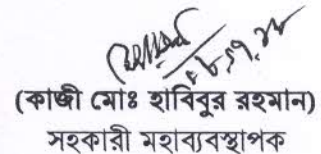 (কাজী মোঃ হাবিবুর রহমান)
সহকারী মহাব্যবস্থাপক